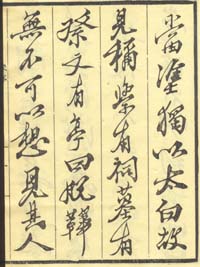 當塗獨以太白故
見稱有祠墓有
祭文有亭曰脫靴
無不可以想見其人